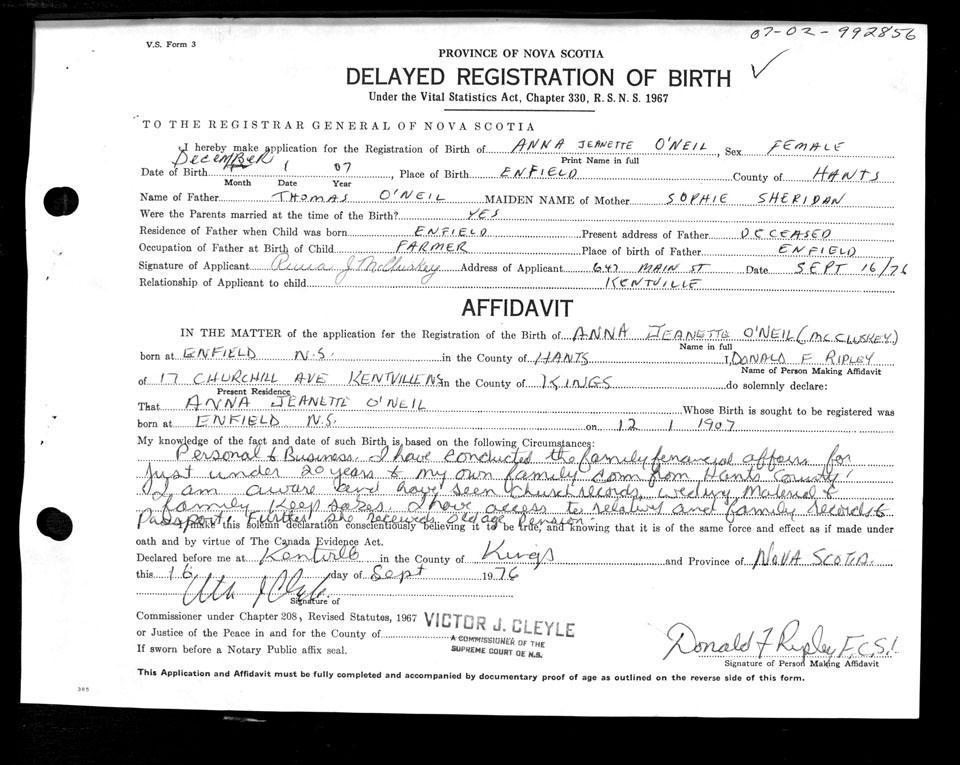 07-02-992856
V.S. Form 3
PROVINCE OF NOVA SCOTIA
DELAYED REGISTRATION OF BIRTH
Under the Vital Statistics Act, Chapter 330, R.S.N.S. 1967
TO THE REGISTRAR GENERAL OF NOVA SCOTIA
I hereby make application for the Registration of Birth of ANNA JEANETTE O'NEIL, Sex FEMALE
Print Name in full
Date of Birth DECEMBER 1 07, Place of Birth ENFIELD County of HANTS
Month Date Year
Name of Father THOMAS O'NEIL MAIDEN NAME of Mother SOPHIE SHERIDAN
Were the Parents married at the time of the Birth? YES
Residence of Father when Child was born ENFIELD Present address of Father DECEASED
Occupation of Father at Birth of Child FARMER Place of birth of Father ENFIELD
Signature of Applicant J McCluskey Address of Applicant 647 MAIN ST Date SEPT 16/76
Relationship of Applicant to child KENTVILLE
AFFIDAVIT
IN THE MATTER of the application for the Registration of the Birth of ANNA JEANETTE O'NEIL (MCCLUSKEY)
Name in full
born at ENFIELD N.S. in the County of HANTS I, DONALD F RIPLEY
Name of Person Making Affidavit
of 17 CHURCHILL AVE KENTVILLE NS in the County of KINGS do solemnly declare:
Present Residence
That ANNA JEANETTE O'NEIL Whose Birth is sought to be registered was
born at ENFIELD N.S. on 12 1 1907
My knowledge of the fact and date of such Birth is based on the following Circumstances:
Personal & Business. I have conducted the family financial affairs for
just under 20 years & my own family com from Hants County.
I am aware and have seen Church records, wedding Material &
family keep sakes. I have access to relatives and family records &
Passport. Further she receives Old age Pension.
I make this solemn declaration conscientiously believing it to be true, and knowing that it is of the same force and effect as if made under
oath and by virtue of The Canada Evidence Act.
Declared before me at Kentville in the County of Kings and Province of NOVA SCOTIA.
this 16 day of Sept 1976
Signature of
Commissioner under Chapter 208, Revised Statutes, 1967 VICTOR J. CLEYLE
or Justice of the Peace in and for the County of A COMMISSIONER OF THE
If sworn before a Notary Public affix seal. SUPREME COURT OF N.S.
Donald F Ripley F.C.S.I.
Signature of Person Making Affidavit
This Application and Affidavit must be fully completed and accompanied by documentary proof of age as outlined on the reverse side of this form.
385